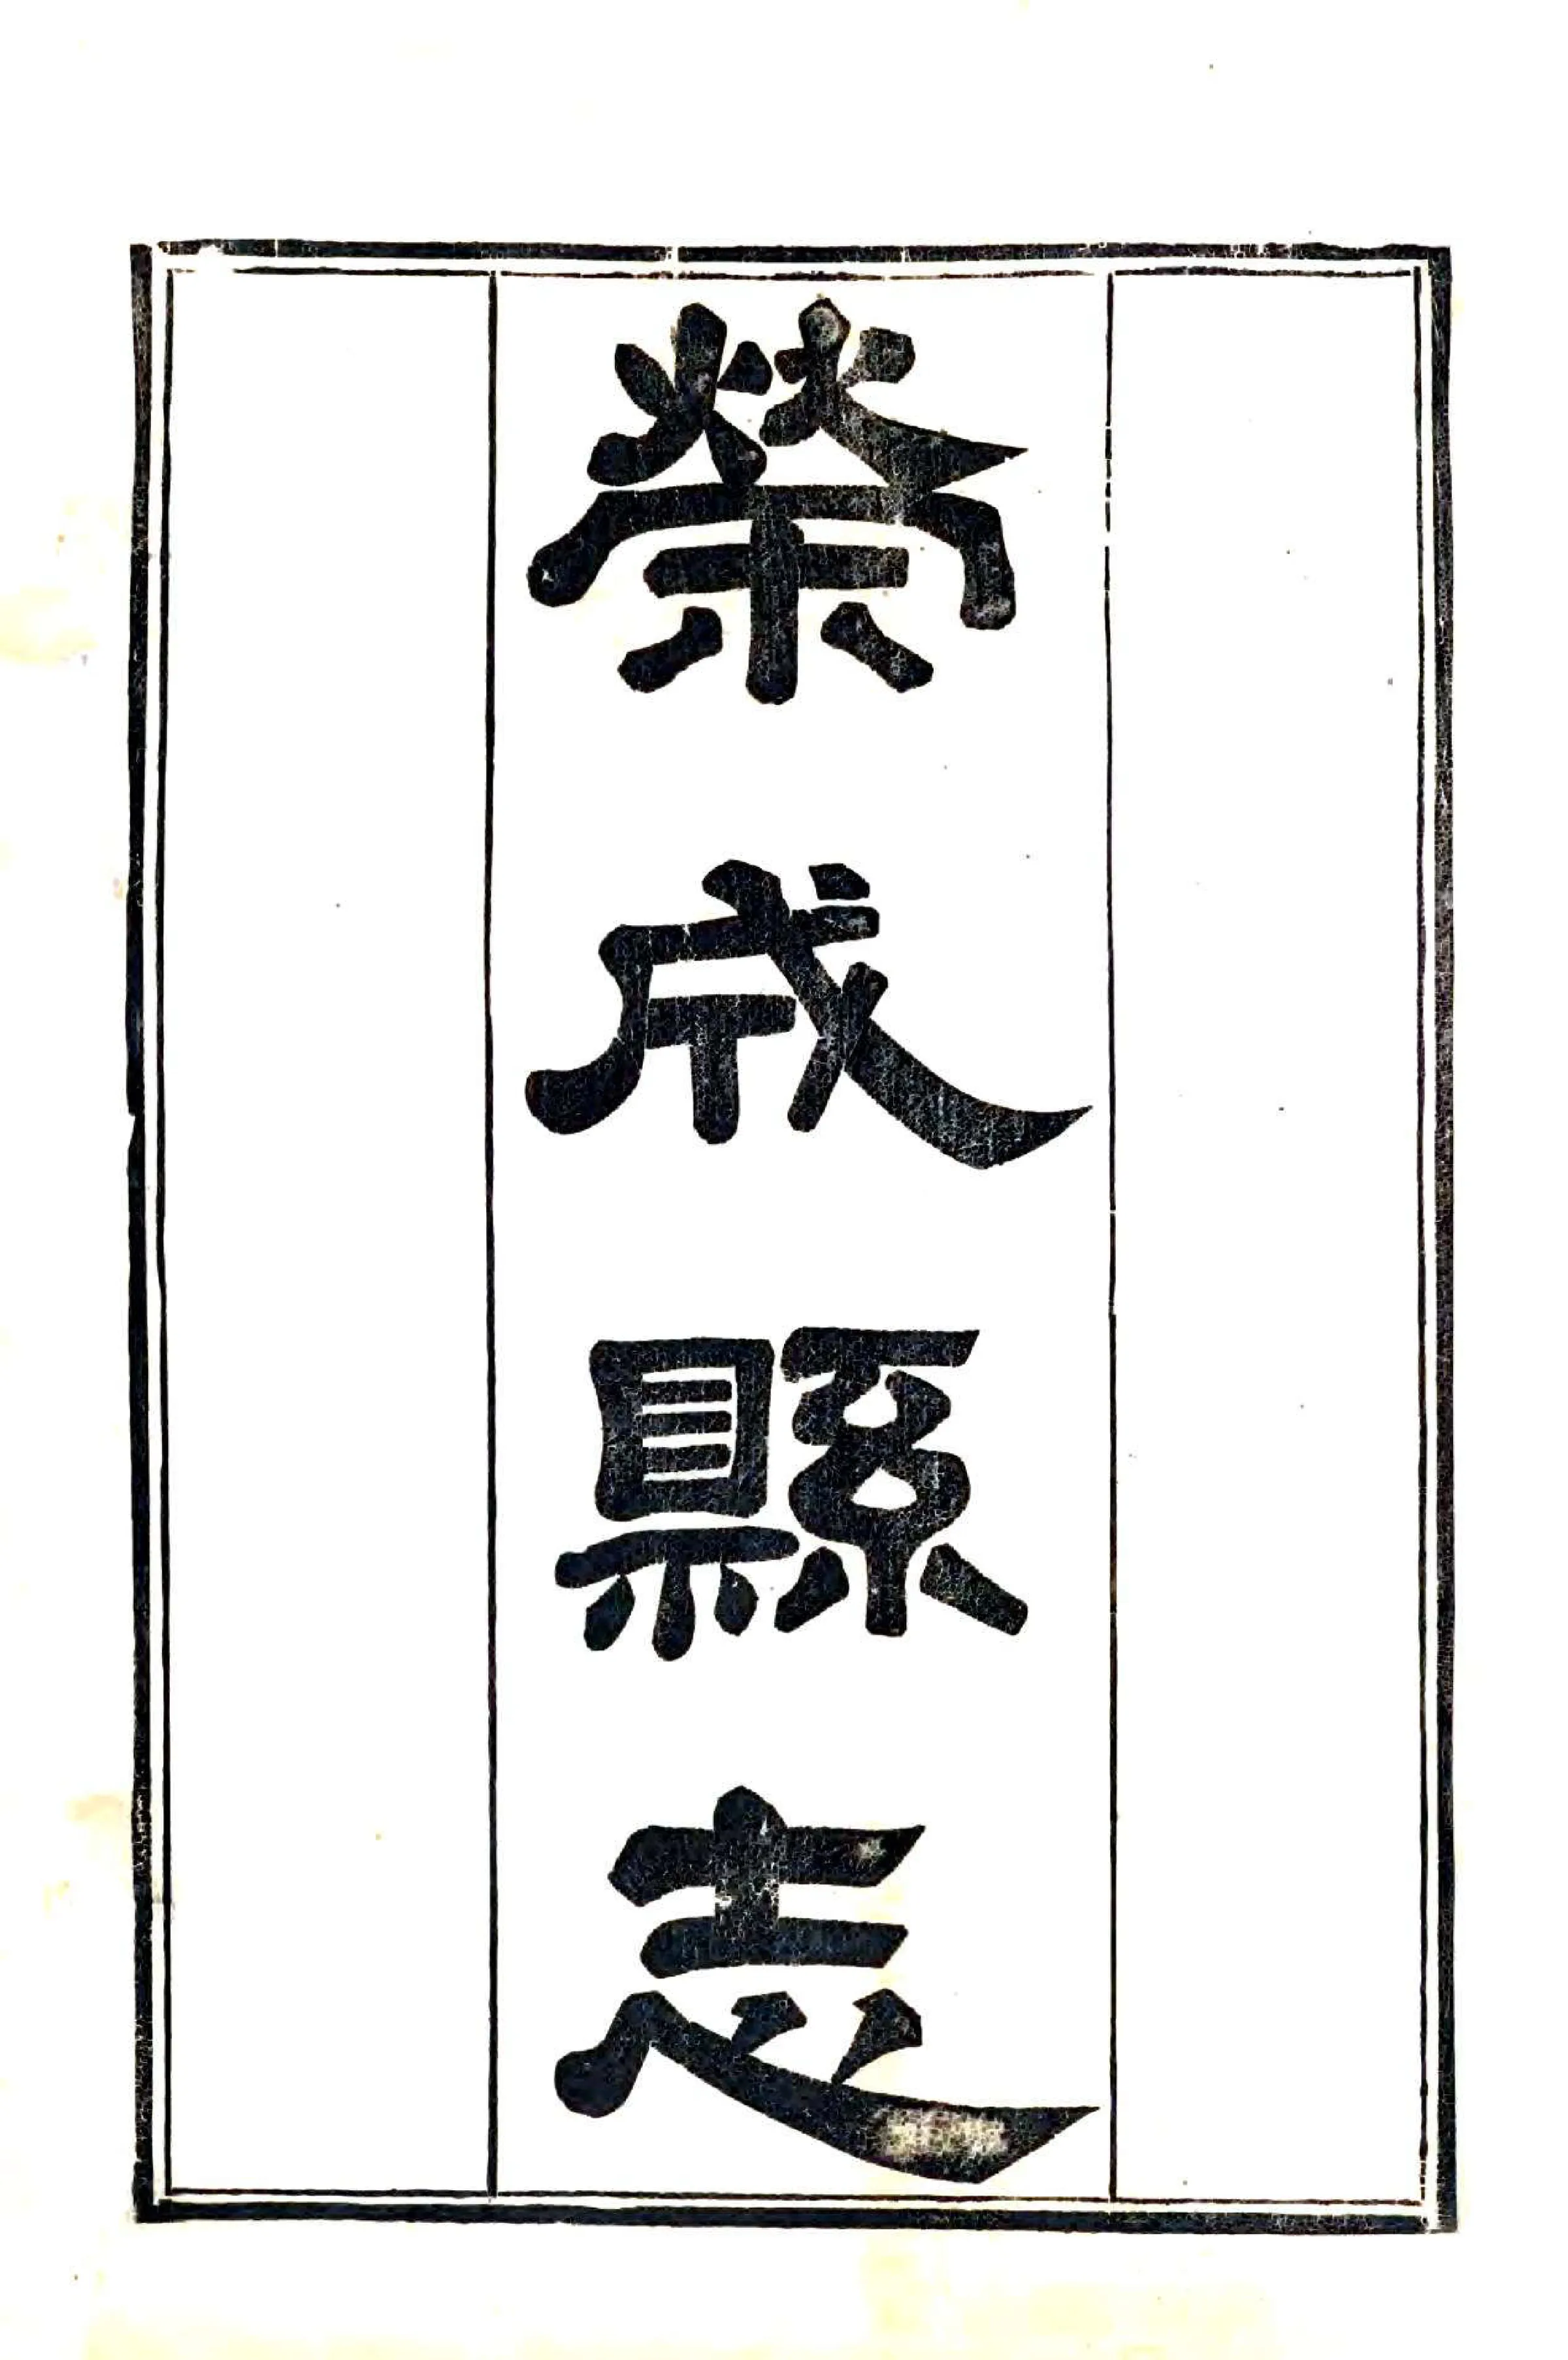 榮成縣志